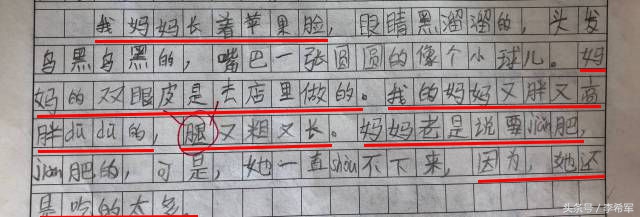 我妈妈长着苹果脸，眼睛黑溜溜的，头发
乌黑乌黑的，嘴巴一张圆圆的像个小球儿。妈
妈的双眼皮是去店里做的。我的妈妈又胖又高
胖dūdū的，腿又粗又长。妈妈老是说要jiǎn肥，
jiǎn肥的，可是，她一直shòu不下来，因为，她还
是吃的太多。
头条号／李希军